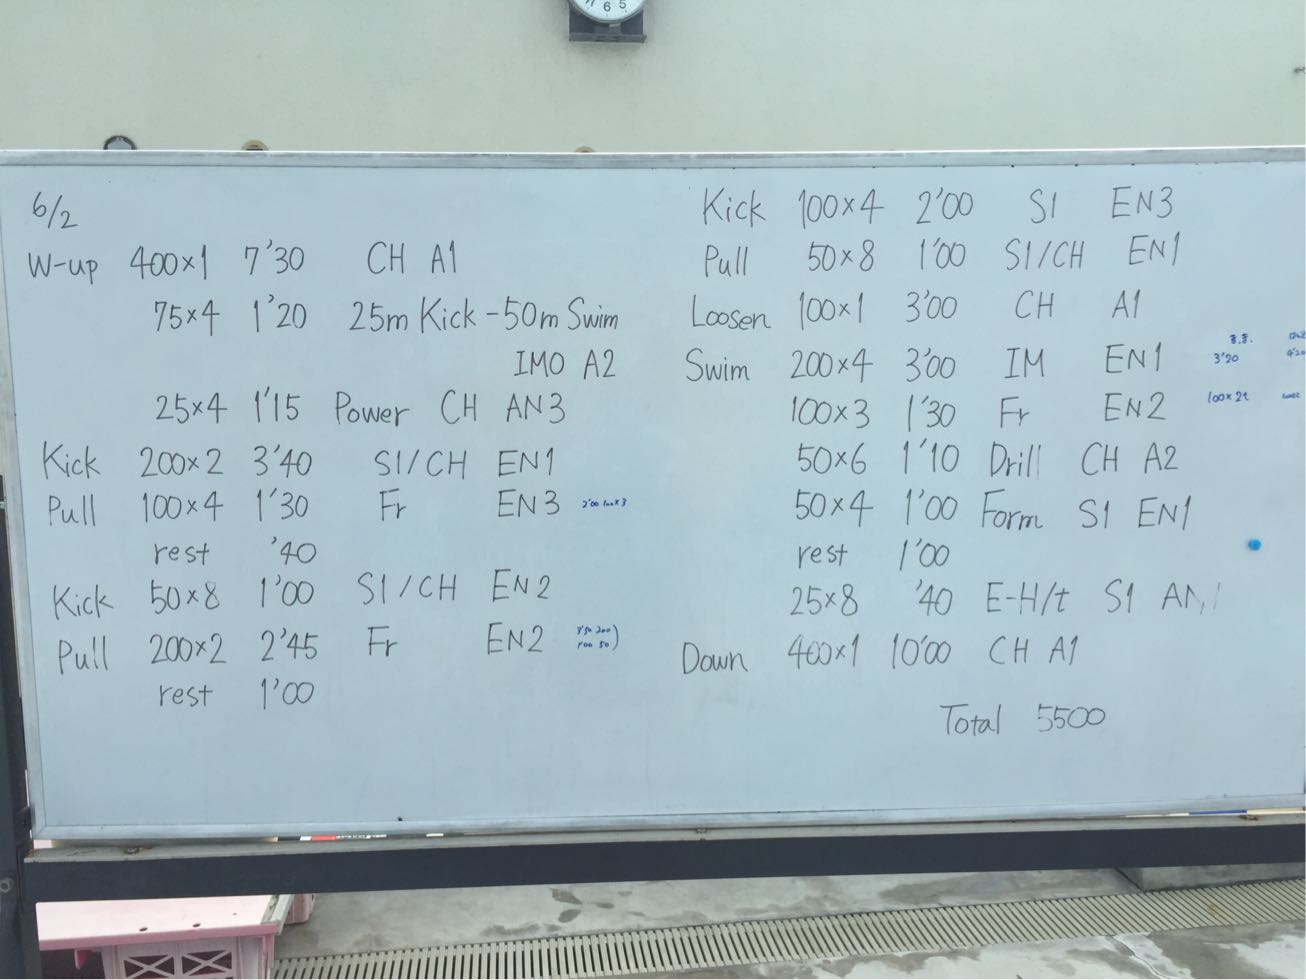 6 5
6/2
W-up 400×1 7'30 CH A1
75×4 1'20 25m Kick - 50m Swim
IMO A2
25×4 1'15 Power CH AN3
Kick 200×2 3'40 S1/CH EN1
Pull 100×4 1'30 Fr EN3 2'00 100×3
rest '40
Kick 50×8 1'00 S1/CH EN2
Pull 200×2 2'45 Fr EN2
rest 1'00
Kick 100×4 2'00 S1 EN3
Pull 50×8 1'00 S1/CH EN1
Loosen 100×1 3'00 CH A1
Swim 200×4 3'00 IM EN1 3'20
100×3 1'30 Fr EN2
50×6 1'10 Drill CH A2
50×4 1'00 Form S1 EN1
rest 1'00
25×8 '40 E-H/t S1
Down 400×1 10'00 CH A1
Total 5500